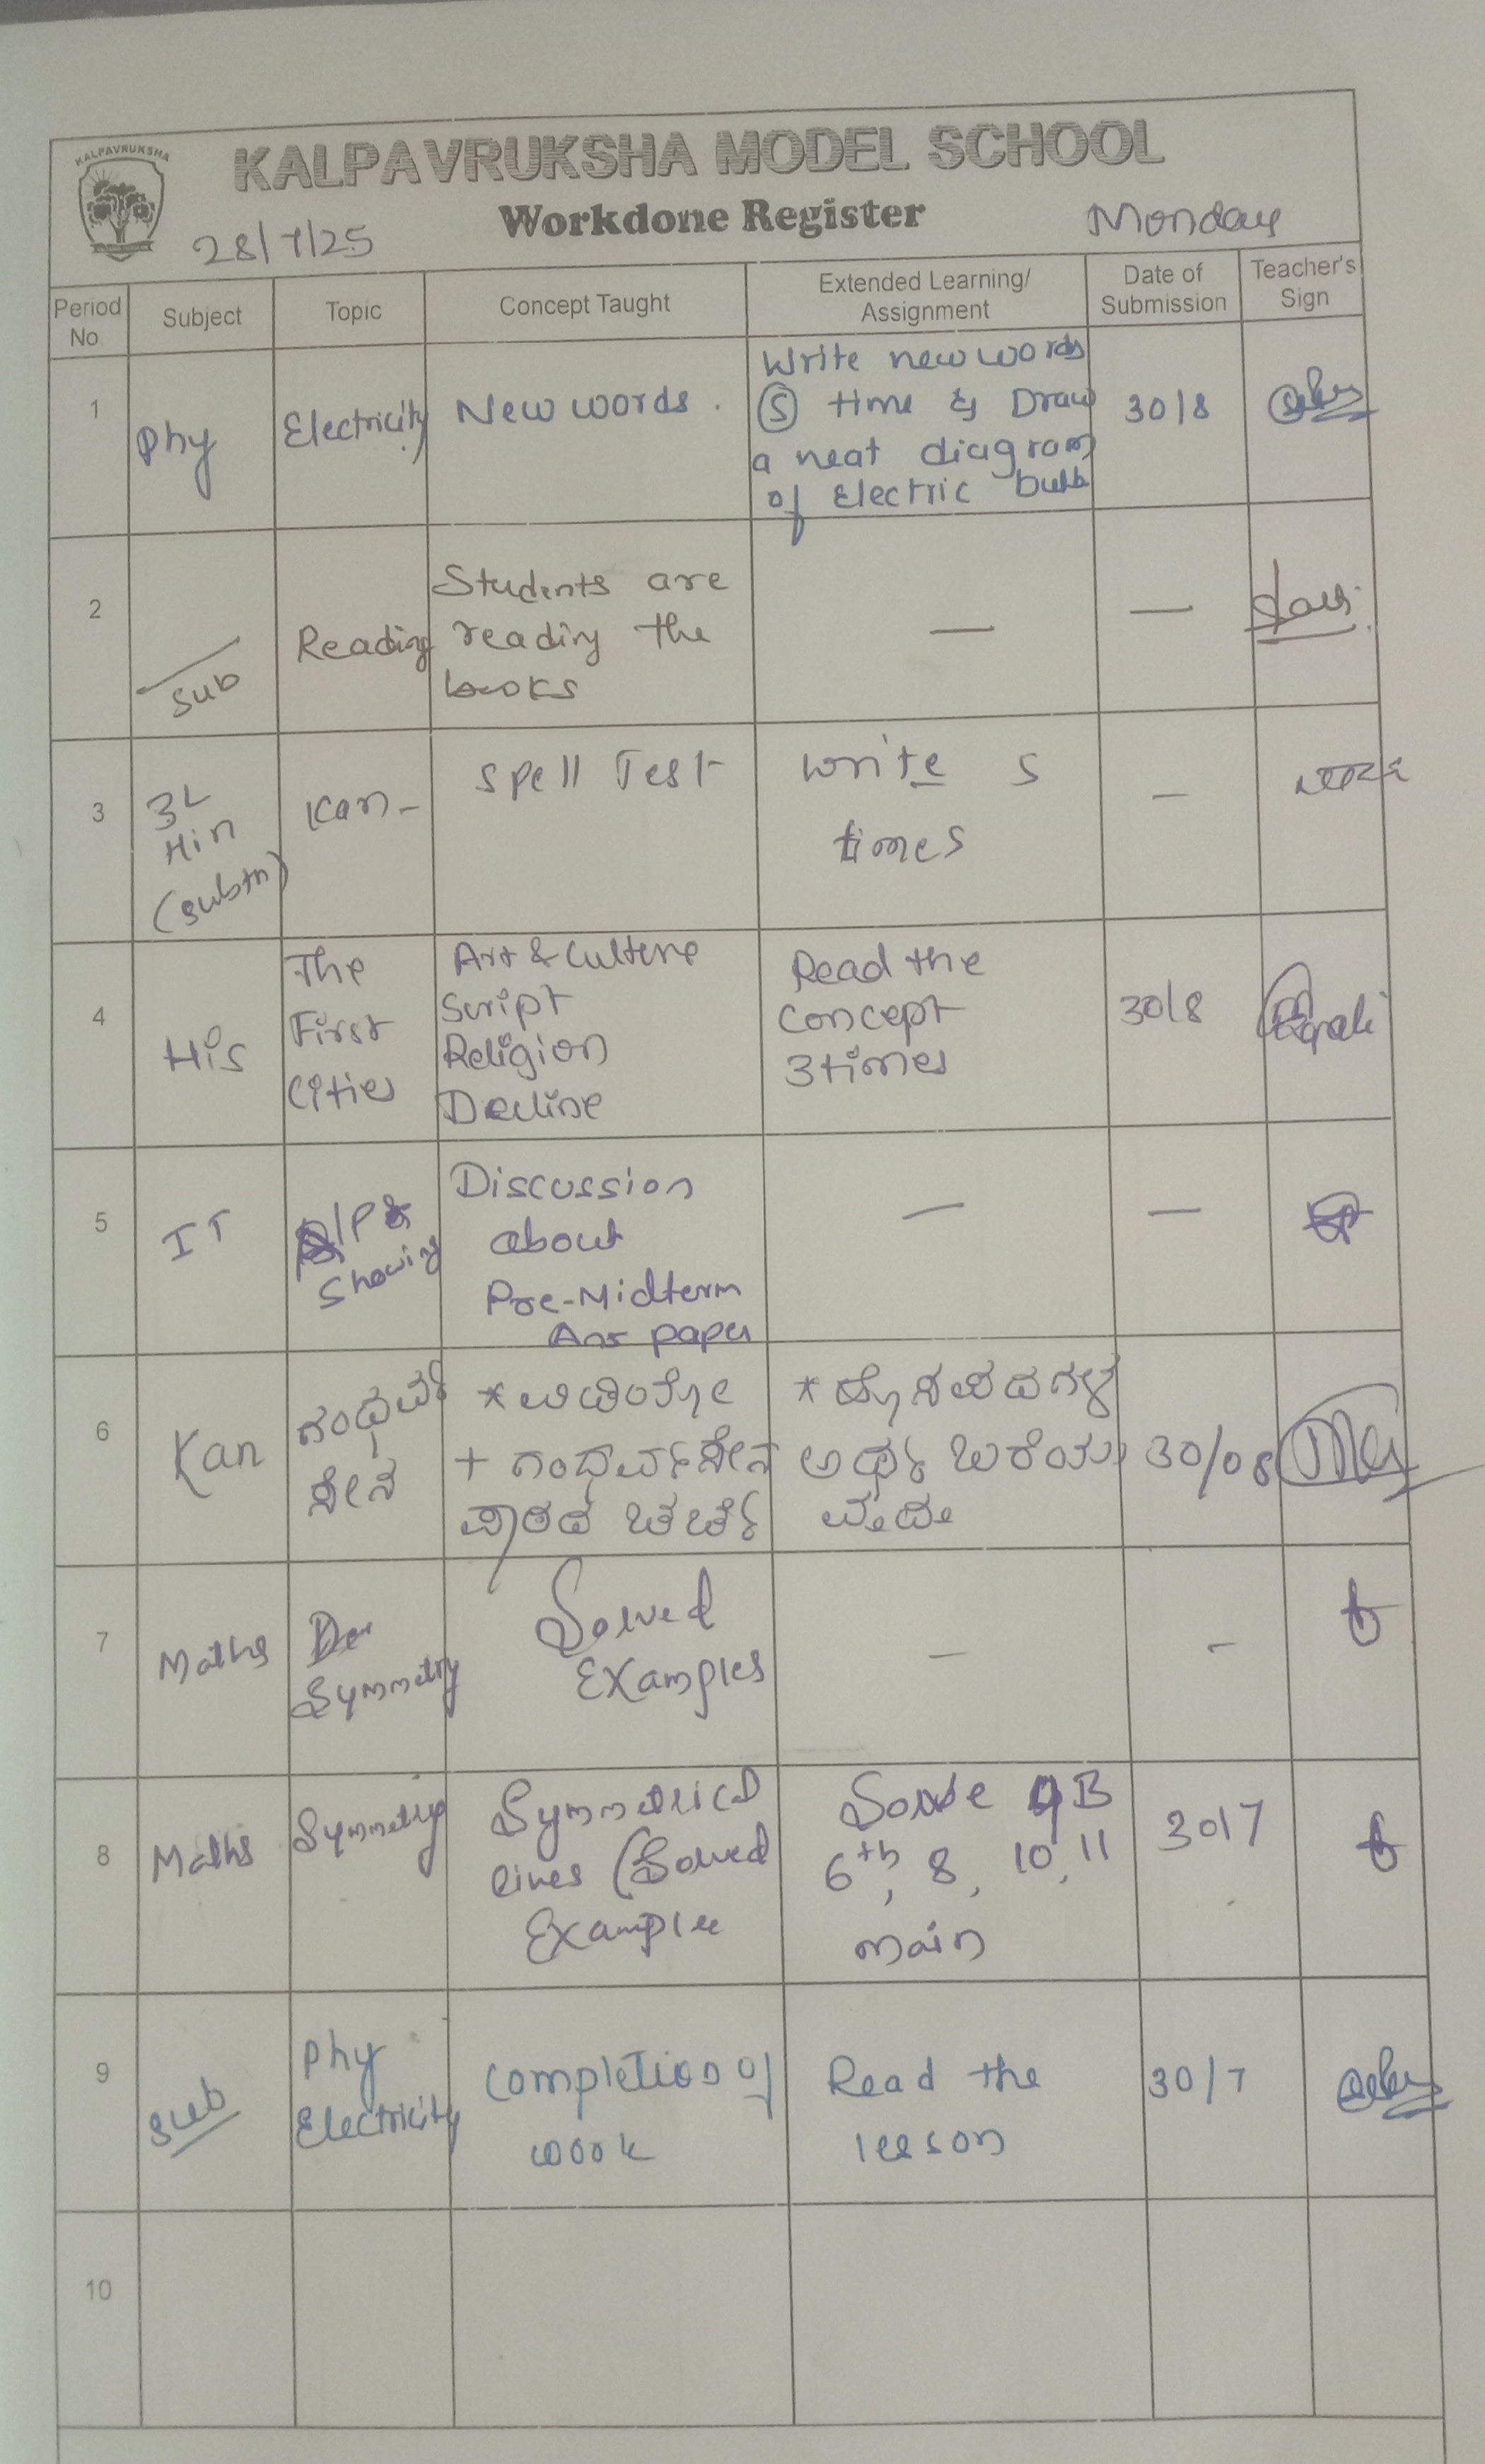 KALPAVRUKSHA
KALPAVRUKSHA MODEL SCHOOL
Workdone Register
28/7/25
Monday
Period No
Subject
Topic
Concept Taught
Extended Learning/ Assignment
Date of Submission
Teacher's Sign
1
Phy
Electricity
New words.
Write new words
5 time & Draw
a neat diagram
of Electric bulb
30/8
2
Sub
Reading
Students are
reading the
books
—
—
3
3L
Hin
(subtn)
Kan-
Spell Test
write 5
times
—
4
His
The
First
Cities
Art & Culture
Script
Religion
Decline
Read the
concept
3 times
30/8
5
IT
Showing
Discussion
about
Pre-Midterm
Ans paper
—
—
6
Kan
ಗಂಧರ್ವ
ಸೇನ
+ ಗಂಧರ್ವಸೇನ
ಪಾಠದ ಚರ್ಚೆ
* ಹೊಸಪದಗಳ
ಅರ್ಥ ಬರೆಯು
ವುದು
30/08
7
Maths
Symmetry
Solved
Examples
—
-
8
Maths
Symmetry
Symmetrical
lines (Solved
Example
Solve QB
6th, 8, 10, 11
main
30/7
9
Sub
Phy
Electricity
Completion of
work
Read the
lesson
30/7
10